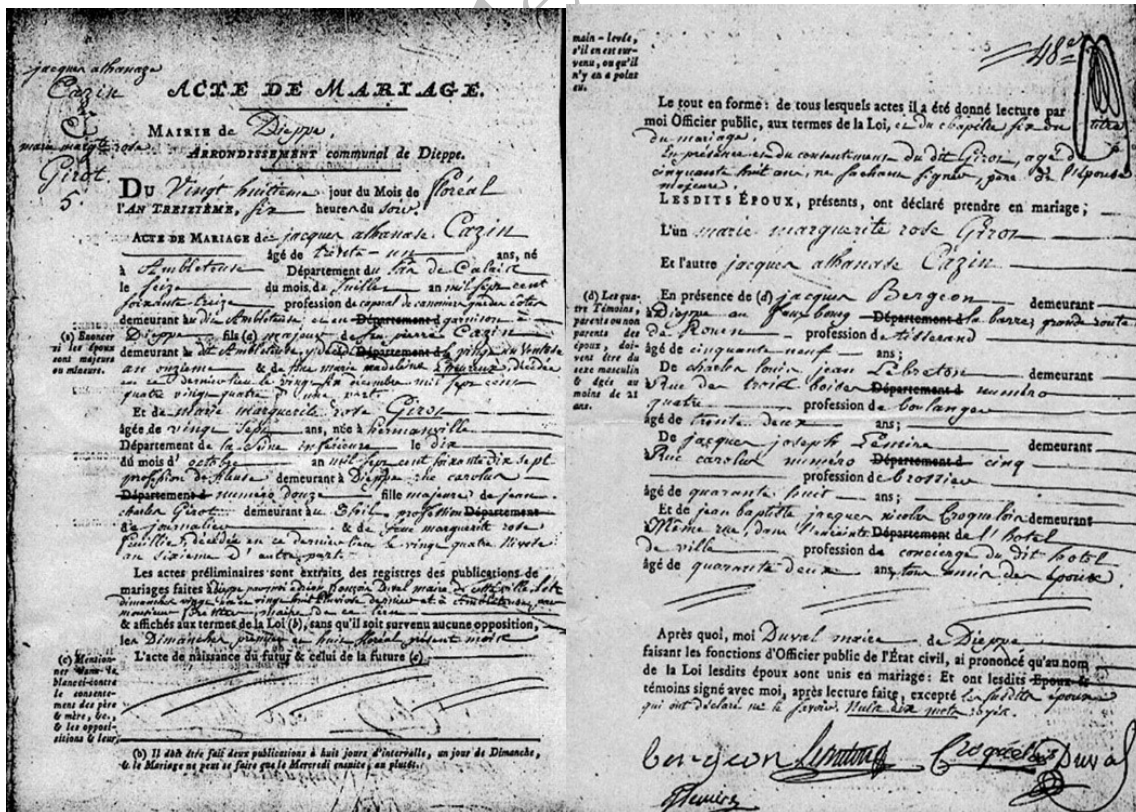 jacques athanaze
Cazin
&
marie margte rose
Girot.
5.
ACTE DE MARIAGE.
MAIRIE de Dieppe.
ARRONDISSEMENT communal de Dieppe.
DU Vingt huitieme jour du Mois de floréal
l'AN TREIZIÈME, six heures du soir.
ACTE DE MARIAGE de jacques athanase Cazin
âgé de trente-un ans, né
à Ambleteuse Département du Pas de Calais
le seize du mois de Juillet an mil sept cent
soixante treize profession de caporal de canonniers gardes côtes
demeurant au dit Ambleteuse et en Département d garnison à
Dieppe fils (a) majeur de jean pierre Cazin
demeurant à dit Ambleteuse, décédé Département d le vingt un Ventôse
an onzieme & de feue marie madeleine décédée
en ce dernier lieu le vingt six décembre mil sept cent
quatre vingt quatre d'une part.
Et de marie marguerite rose Girot
âgée de vingt sept ans, née à hermanville
Département de la Seine inférieure le dix
du mois d'octobre an mil sept cent soixante dix sept
profession de fileuse demeurant à Dieppe rue carolus
Département d numéro douze fille majeure de jean
charles Girot demeurant au profession Département
de journalier & de feue marguerite rose
décédée en ce dernier lieu le vingt quatre Nivose
an sixieme d'autre part.
Les actes préliminaires sont extraits des registres des publications de
mariages faites à Dieppe par Duval maire de cette ville le
dimanche
monsieur maire de ce lieu
& affichés aux termes de la Loi (b), sans qu'il soit survenu aucune opposition,
les Dimanches premier et huit floréal présent mois
L'acte de naissance du futur & celui de la future (c)
(a) Enoncer
si les époux
sont majeurs
ou mineurs.
(c) Mention-
ner dans le
blanc ci-contre
le consente-
ment des père
& mère, &c.,
& les opposi-
sitions & leur
(b) Il doit être fait deux publications à huit jours d'intervalle, un jour de Dimanche,
& le Mariage ne peut se faire que le Mercredi ensuite, au plutôt.
main-levée,
s'il en est sur-
venu, ou qu'il
n'y en a point
eu.
48e
Le tout en forme : de tous lesquels actes il a été donné lecture par
moi Officier public, aux termes de la Loi, et du chapitre six du titre
du mariage.
En présence et du consentement du dit Girot, agé de
cinquante huit ans, ne sachant signer, père de l'épouse
majeure.
LESDITS ÉPOUX, présents, ont déclaré prendre en mariage ;
L'un marie marguerite rose Girot
Et l'autre jacques athanase Cazin
En présence de (d) jacques Bergeon demeurant
à Dieppe au faux bourg Département d la barre, grande route
de Rouen profession de tisserand
âgé de cinquante neuf ans ;
De charles louis jean Lebreton demeurant
Rue des trois Département d numéro
quatre profession de boulanger
âgé de trente deux ans ;
De jacques joseph demeurant
Rue carolus numéro Département d cinq
profession de brossier
âgé de quarante huit ans ;
Et de jean baptiste jacques nicolas Croquelois demeurant
Même rue, dans l'enceinte Département de l'hotel
de ville profession de concierge du dit hotel
âgé de quarante deux ans, tous amis des époux.
(d) Les qua-
tre Témoins,
parents ou non
parents des
époux, doi-
vent être du
sexe masculin
& âgés au
moins de 21
ans.
Après quoi, moi Duval maire de Dieppe
faisant les fonctions d'Officier public de l'État civil, ai prononcé qu'au nom
de la Loi lesdits époux sont unis en mariage : Et ont lesdits Epoux &
témoins signé avec moi, après lecture faite, excepté les susdits époux
qui ont déclaré ne le savoir. Nuls dix mots rayés.
bergeon Croquelois Duval